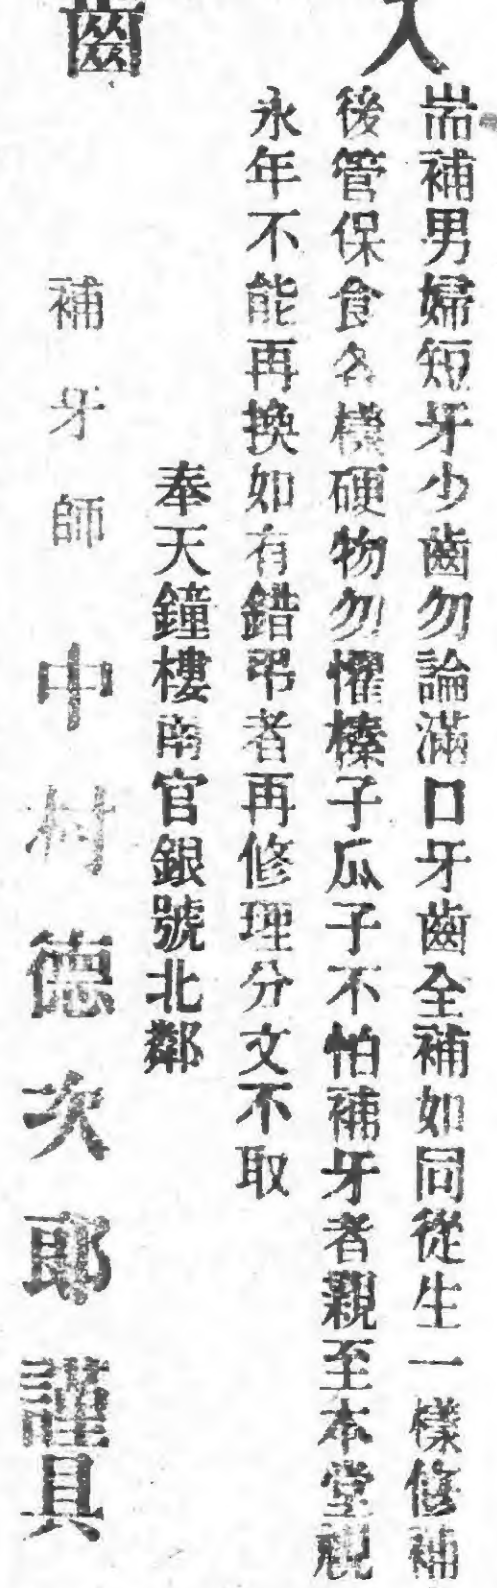 入
齒
耑補男婦短牙少齒勿論滿口牙齒全補如同從生一樣修補
後管保食各樣硬物勿懼榛子瓜子不怕補牙者親至本堂親
永年不能再換如有錯弔者再修理分文不取
奉天鐘樓南官銀號北鄰
補牙師 中村德次郎謹具